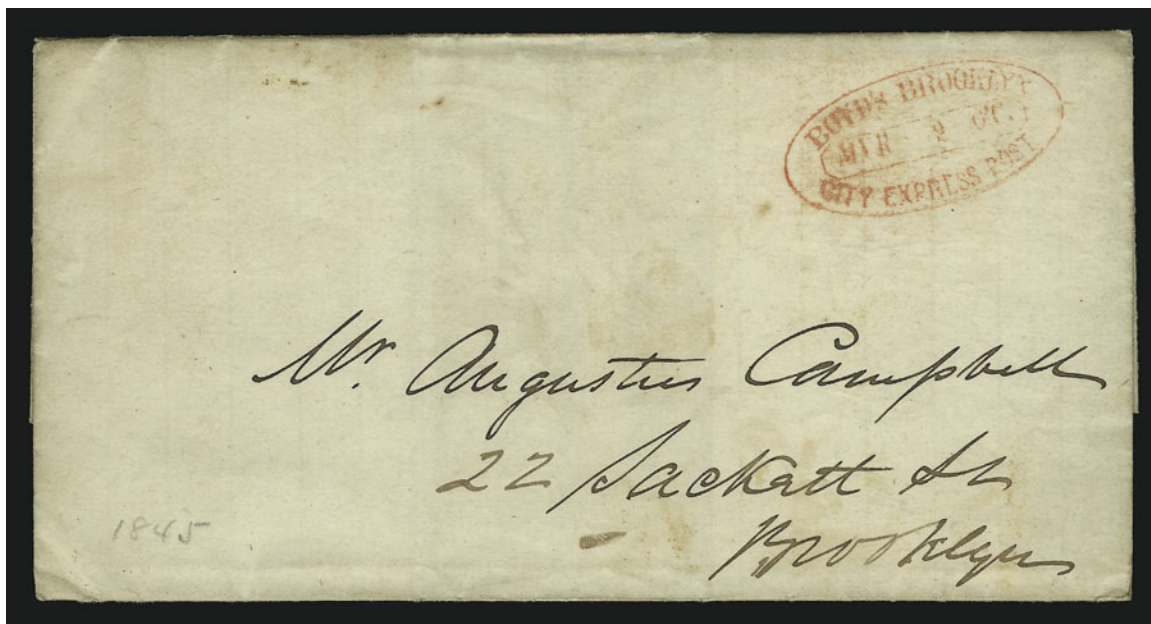 BOYD'S BROOKLYN
MAR 2 O'C.
CITY EXPRESS POST
Mr. Augustus Campbell
22 Sackett St
Brooklyn
1845